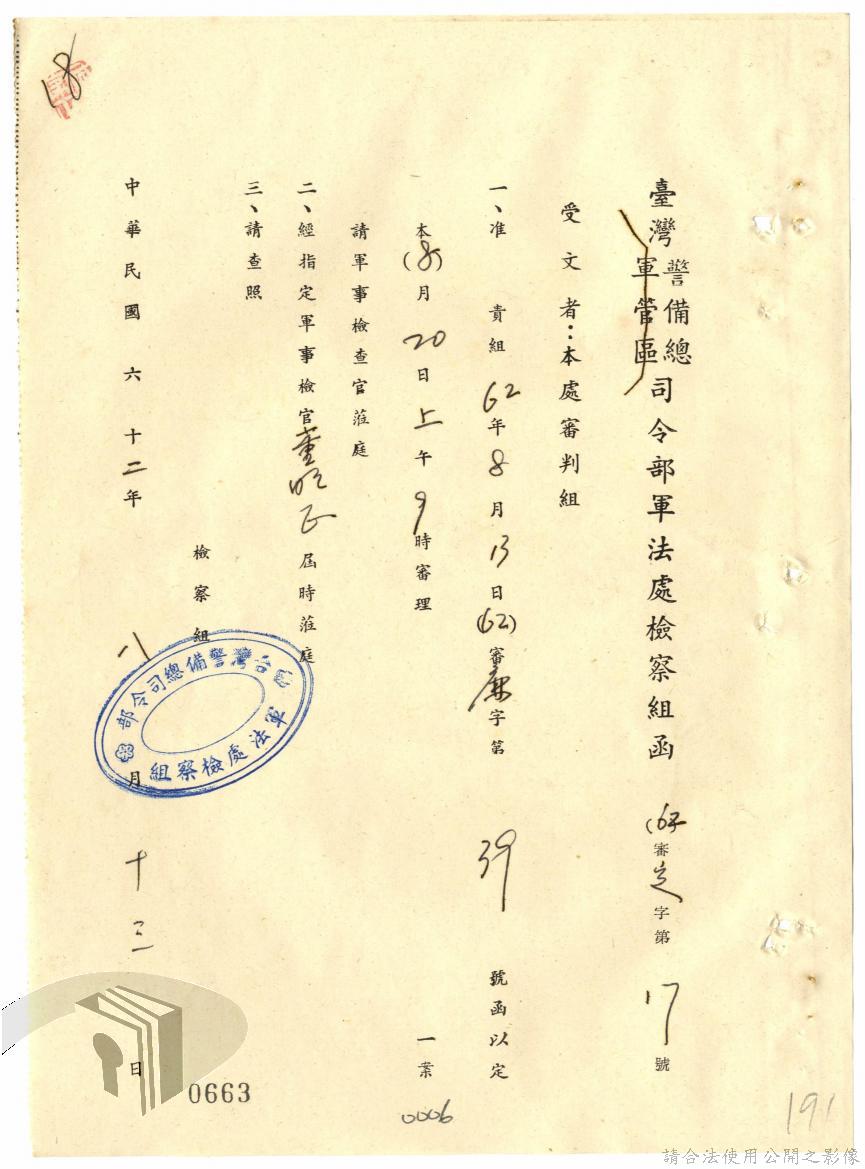 臺灣警備總軍管區司令部軍法處檢察組函
(62)審定字第17號
受文者：本處審判組
一、准 貴組62年8月13日(62)審廉字第39號函以定
本(8)月20日上午9時審理 一案
請軍事檢查官蒞庭
二、經指定軍事檢官董明正屆時蒞庭
三、請查照
檢察組
台灣警備總司令部
軍法處檢察組
中華民國六十二年八月十三日
18
0663
0006
191
請合法使用公開之影像